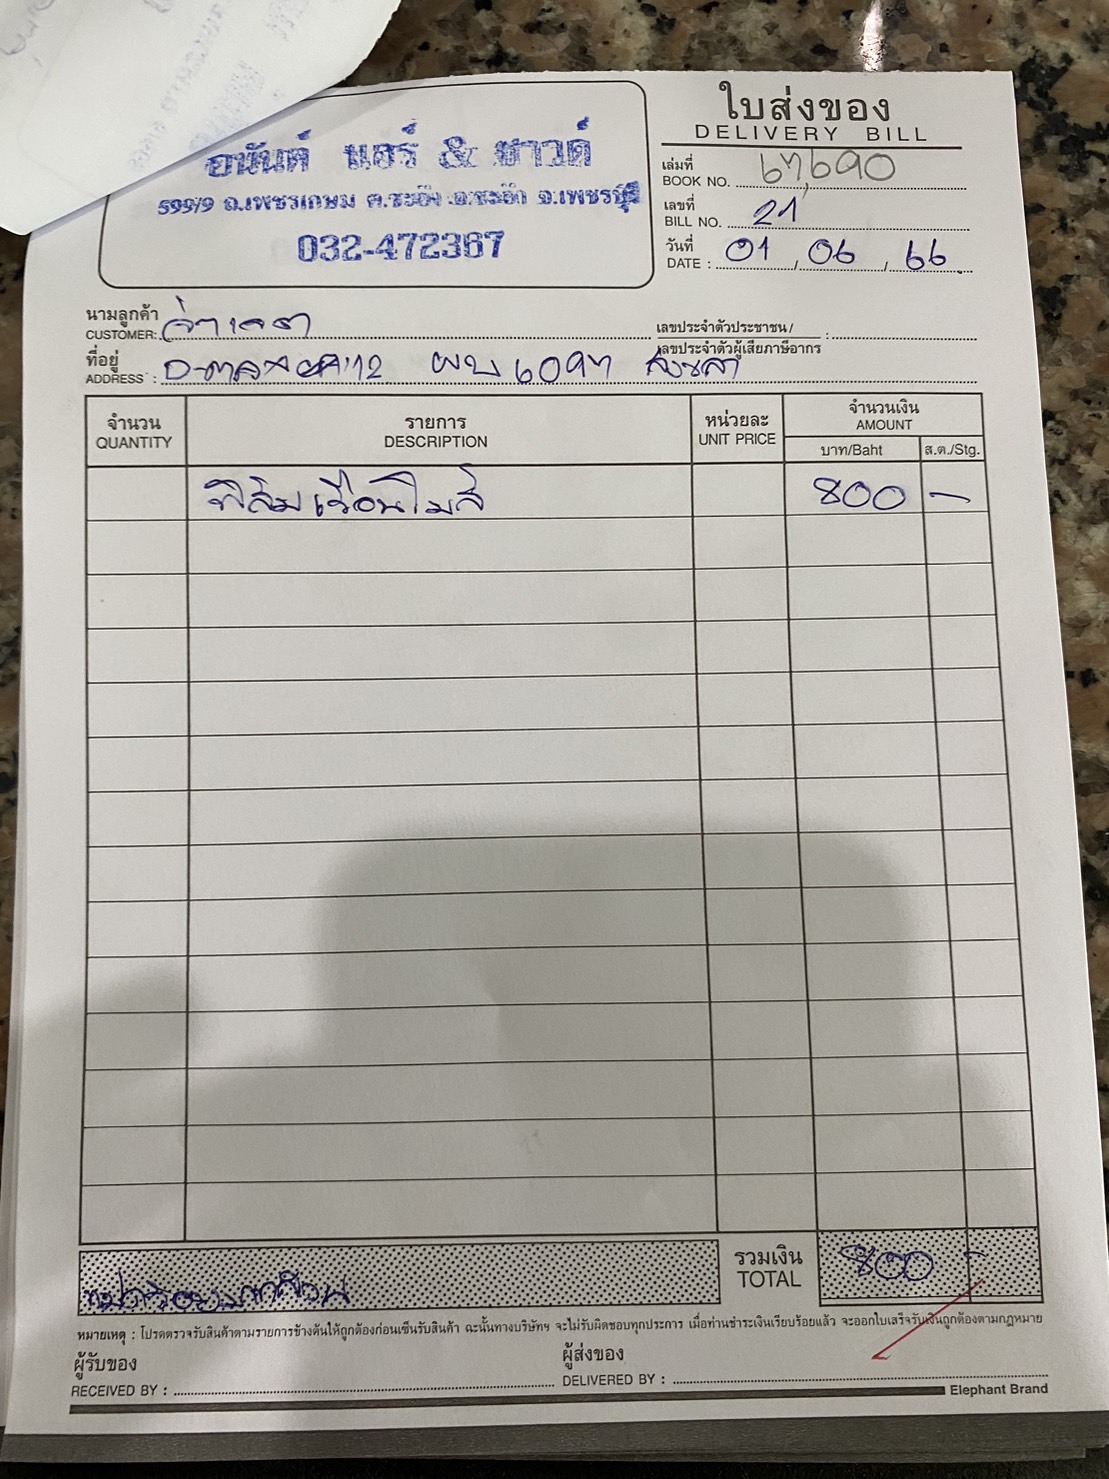 ใบส่งของ
DELIVERY BILL
อนันต์ แอร์ & ซาวด์
599/9 ถ.เพชรเกษม ต.ชะอำ อ.ชะอำ จ.เพชรบุรี
032-472367
เล่มที่
BOOK NO. 67,690
เลขที่
BILL NO. 21
วันที่
DATE : 01 / 06 / 66
นามลูกค้า
CUSTOMER:
เลขประจำตัวประชาชน /
เลขประจำตัวผู้เสียภาษีอากร :
ที่อยู่
ADDRESS : D-max 6097 สงขลา
จำนวน
QUANTITY
รายการ
DESCRIPTION
หน่วยละ
UNIT PRICE
จำนวนเงิน
AMOUNT
บาท/Baht ส.ต./Stg.
ฟิล์มเรือนไมล์ 800 -
รวมเงิน
TOTAL 800 -
หมายเหตุ : โปรดตรวจรับสินค้าตามรายการข้างต้นให้ถูกต้องก่อนเซ็นรับสินค้า ฉะนั้นทางบริษัทฯ จะไม่รับผิดชอบทุกประการ เมื่อท่านชำระเงินเรียบร้อยแล้ว จะออกใบเสร็จรับเงินถูกต้องตามกฎหมาย
ผู้รับของ
RECEIVED BY :
ผู้ส่งของ
DELIVERED BY :
Elephant Brand